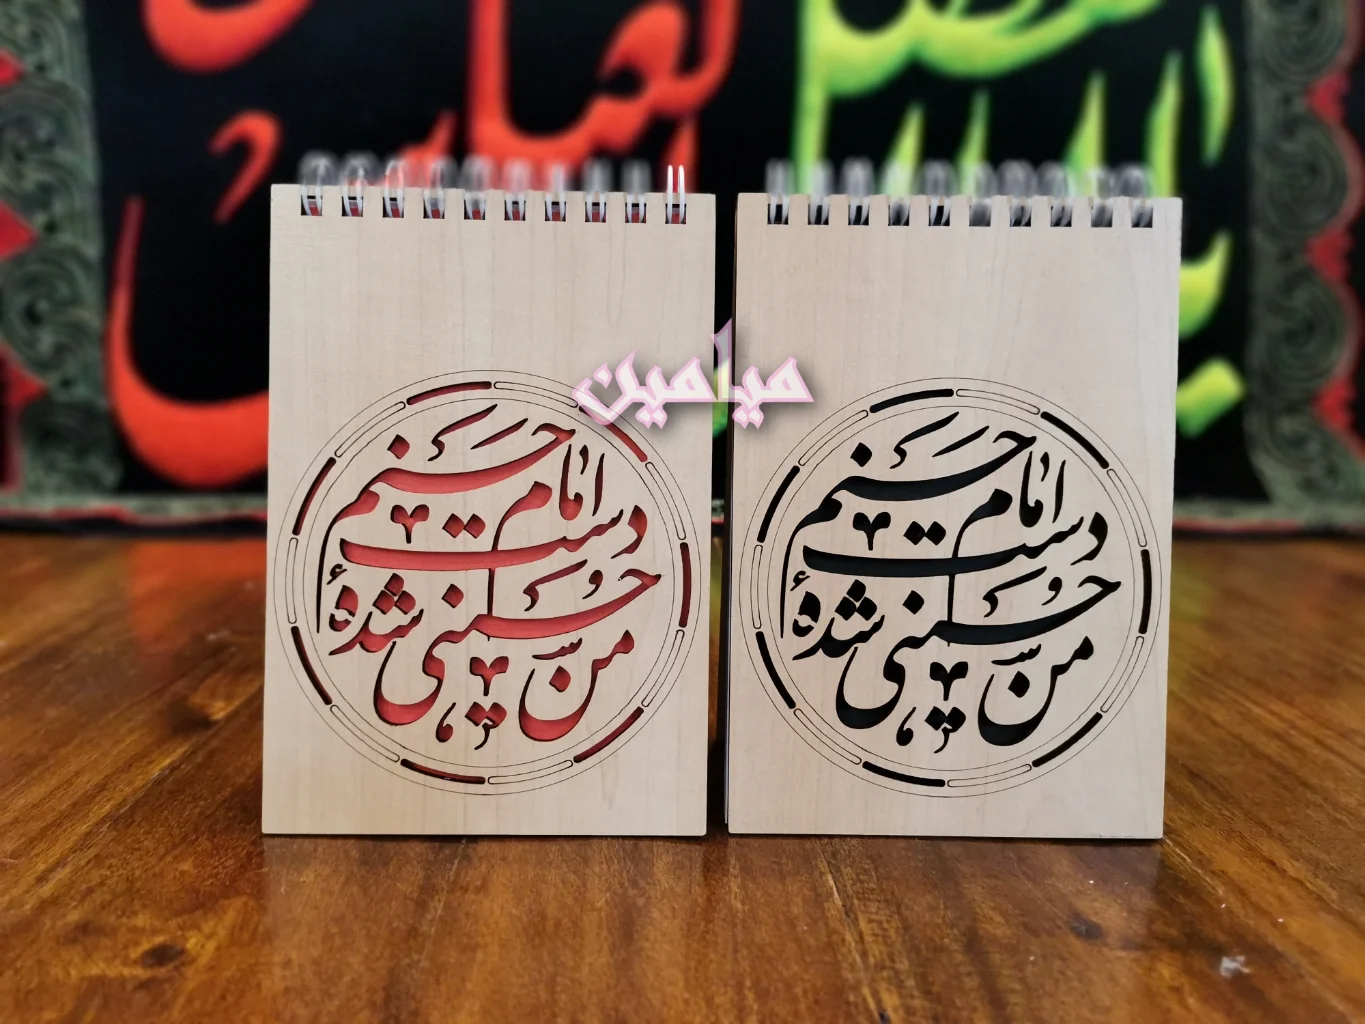 میامین
من حسینی شدهٔ
دست امام حسنم
من حسینی شدهٔ
دست امام حسنم